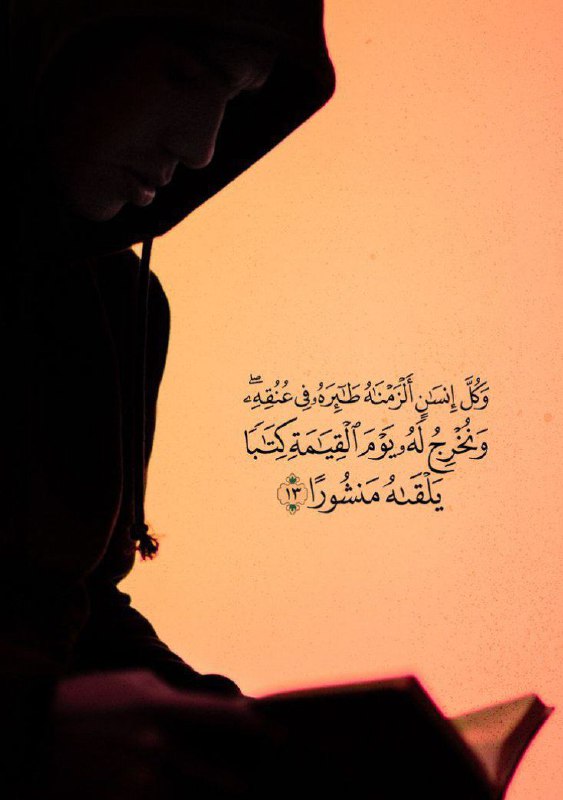 وَكُلَّ إِنسَٰنٍ أَلْزَمْنَٰهُ طَٰٓئِرَهُۥ فِى عُنُقِهِۦ ۖ
وَنُخْرِجُ لَهُۥ يَوْمَ ٱلْقِيَٰمَةِ كِتَٰبًا
يَلْقَىٰهُ مَنشُورًا ١٣